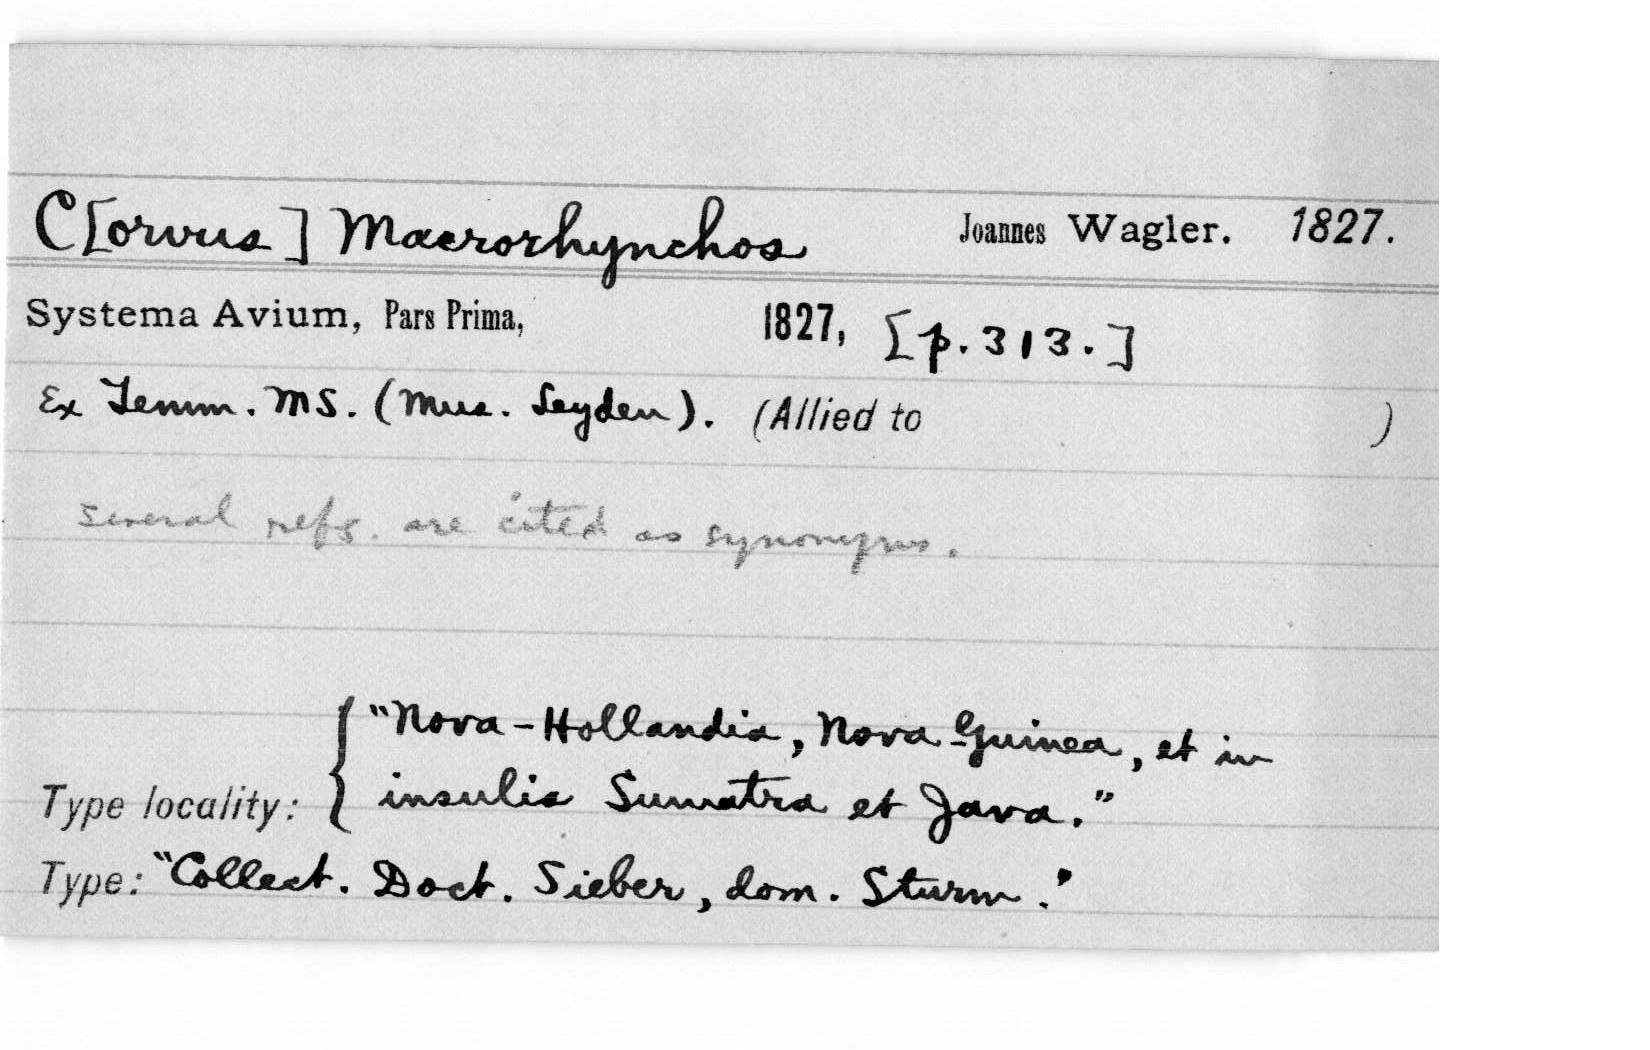 C[orvus] Macrorhynchos Joannes Wagler. 1827.
Systema Avium, Pars Prima, 1827, [p. 313.]
Ex Temm. MS. (Mus. Leyden). (Allied to )
several refs. are cited as synonyms.
"Nova-Hollandia, Nova-Guinea, et in
Type locality: { insulis Sumatra et Java."
Type: "Collect. Doct. Sieber, dom. Sturm."